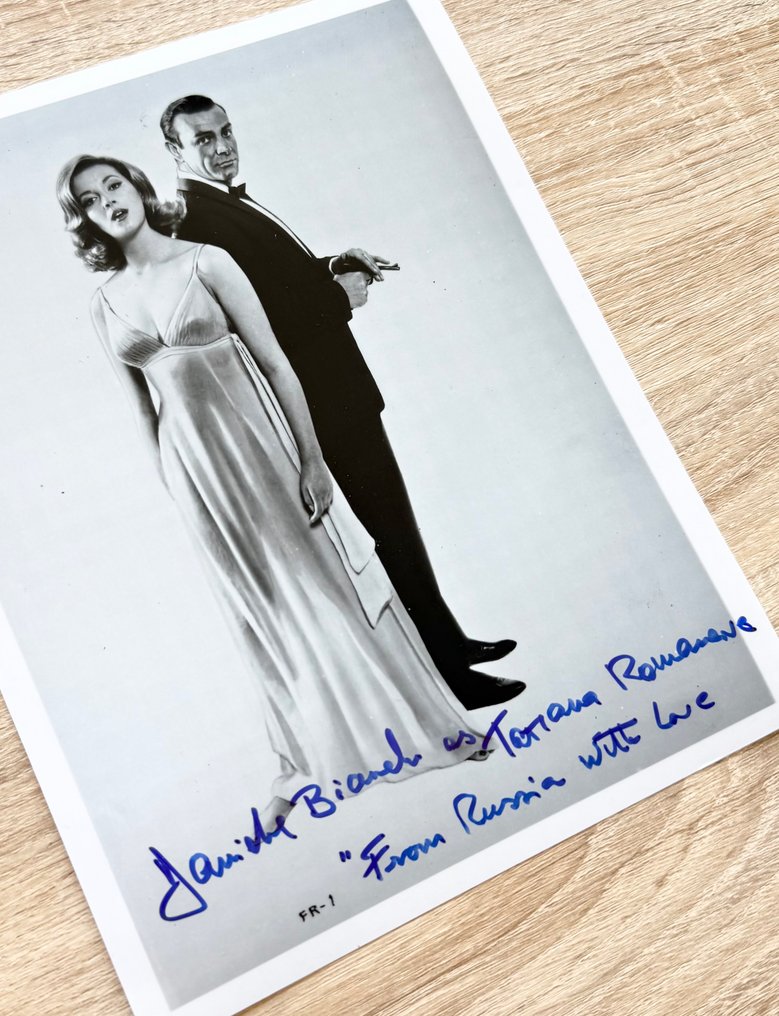 Daniela Bianchi as Tatiana Romanova
"From Russia with Love
FR-1